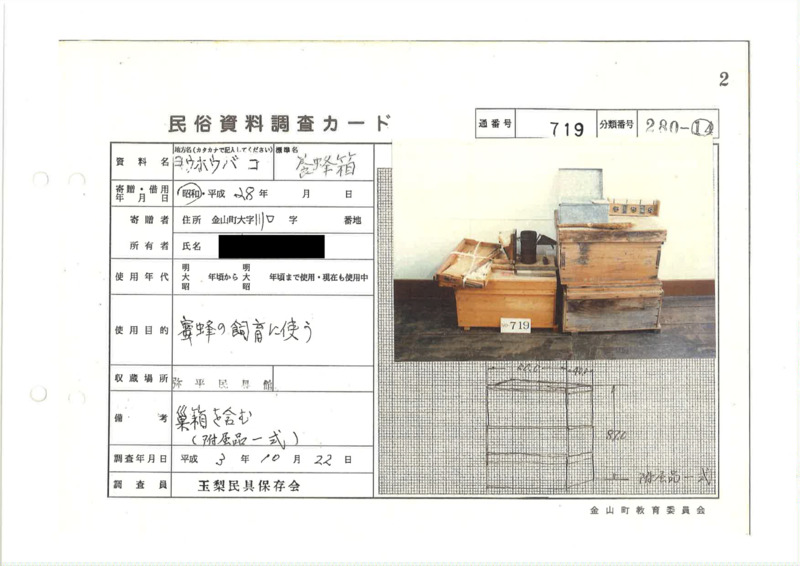 2
民俗資料調査カード
通番号 719 分類番号 280-14
資料名 地方名(カタカナで記入してください) ヨウホウバコ 標準名 養蜂箱
寄贈・借用年月日 昭和・平成 28年 月 日
寄贈者 住所 金山町大字川口 字 番地
所有者 氏名
使用年代 明大昭 年頃から 明大昭 年頃まで使用・現在も使用中
使用目的 蜜蜂の飼育に使う
収蔵場所 弥平民具館
備考 巣箱を含む
(附属品一式)
調査年月日 平成 3年 10月 22日
調査員 玉梨民具保存会
719
附属品一式
金山町教育委員会